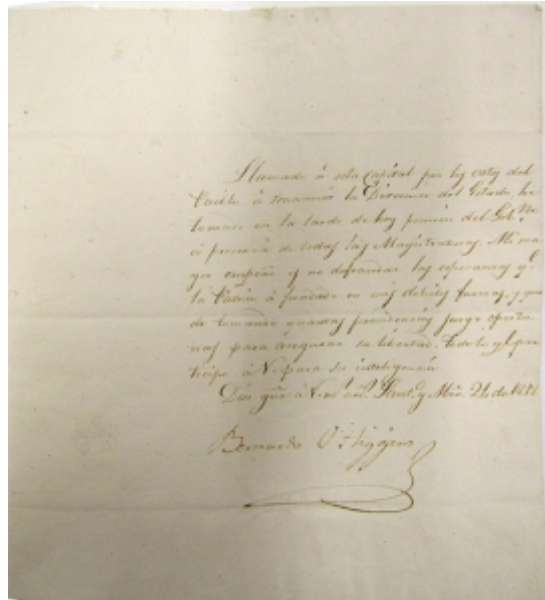 Llamado á esta Capital por los votos del
Pueblo á reasumir la Direccion del Estado, he
tomado en la tarde de hoy posesion del
á presencia de todas las Magistraturas. Mi ma-
yor empeño es no defraudar las esperanzas q.
la Patria á fundado en mis debiles fuerzas, y
tomando quantas providencias juzgo oportu-
nas para asegurar su libertad. Todo lo q.
á V. para su inteligencia
Dios gũe á V. m.
Bernardo O'Higgins